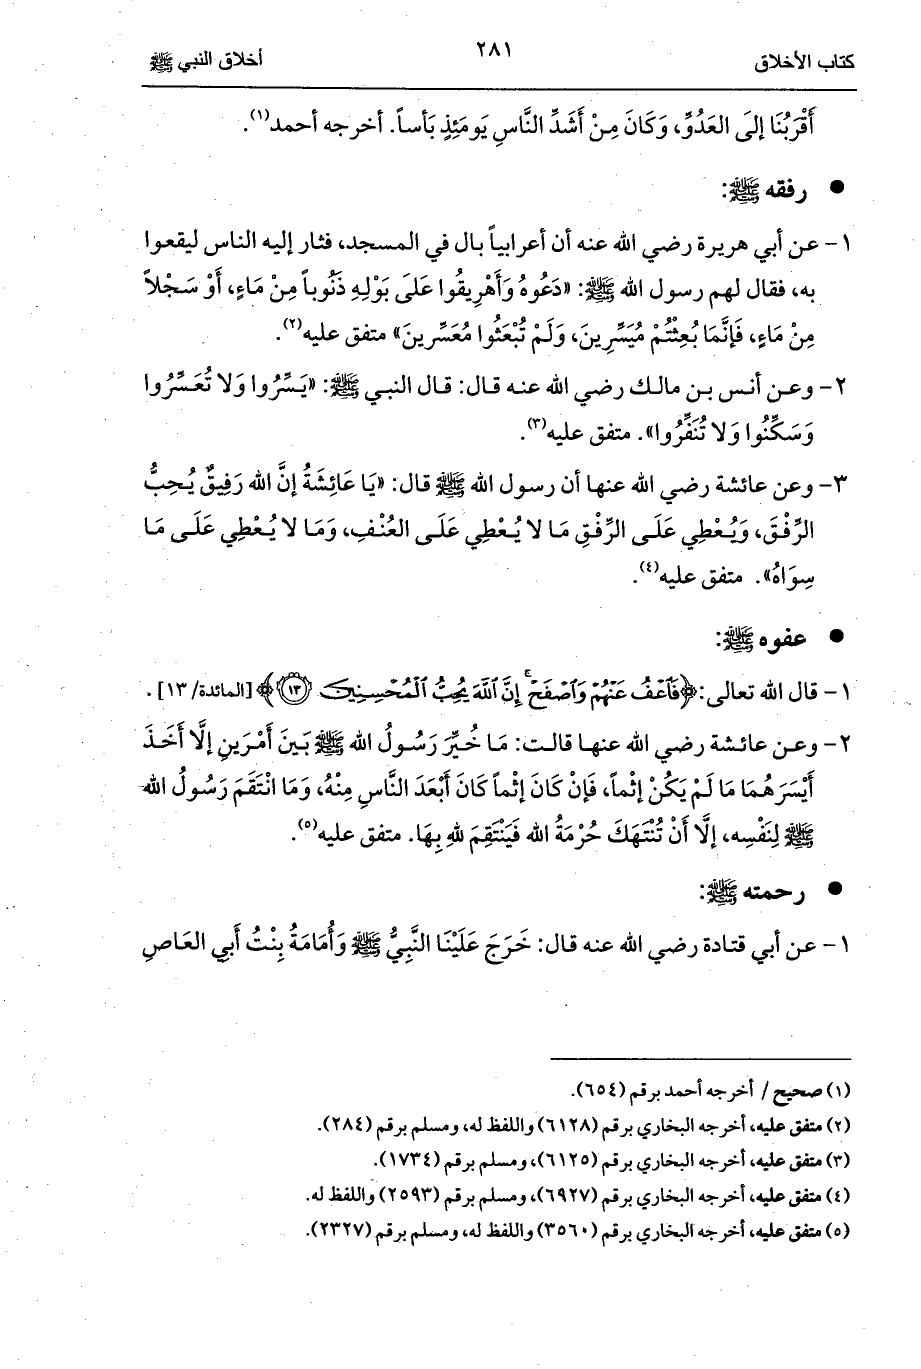 كتاب الأخلاق ٢٨١ أخلاق النبي ﷺ
أَقْرَبُنَا إلَى العَدُوِّ، وَكَانَ مِنْ أَشَدِّ النَّاسِ يَومَئِذٍ بَأساً. أخرجه أحمد(١).
● رفقه ﷺ:
١- عن أبي هريرة رضي الله عنه أن أعرابياً بال في المسجد، فثار إليه الناس ليقعوا
به، فقال لهم رسول الله ﷺ: «دَعُوهُ وَأَهْرِيقُوا عَلَى بَوْلِهِ ذَنُوباً مِنْ مَاءٍ، أَوْ سَجْلاً
مِنْ مَاءٍ، فَإنَّمَا بُعِثْتُمْ مُيَسِّرِينَ، وَلَمْ تُبْعَثُوا مُعَسِّرينَ» متفق عليه(٢).
٢- وعن أنس بن مالك رضي الله عنه قال: قال النبي ﷺ: «يَسِّرُوا وَلا تُعَسِّرُوا
وَسَكِّنُوا وَلا تُنَفِّرُوا». متفق عليه(٣).
٣- وعن عائشة رضي الله عنها أن رسول الله ﷺ قال: «يَا عَائِشَةُ إنَّ الله رَفِيقٌ يُحِبُّ
الرِّفْقَ، وَيُعْطِي عَلَى الرِّفْقِ مَا لا يُعْطِي عَلَى العُنْفِ، وَمَا لا يُعْطِي عَلَى مَا
سِوَاهُ». متفق عليه(٤).
● عفوه ﷺ:
١- قال الله تعالى: ﴿فَاعْفُ عَنْهُمْ وَاصْفَحْ ۚ إِنَّ اللَّهَ يُحِبُّ الْمُحْسِنِينَ ١٣﴾ [المائدة/ ١٣].
٢- وعن عائشة رضي الله عنها قالت: مَا خُيِّرَ رَسُولُ الله ﷺ بَينَ أَمْرَينِ إلَّا أَخَذَ
أَيْسَرَهُمَا مَا لَمْ يَكُنْ إثْماً، فَإنْ كَانَ إثْماً كَانَ أَبْعَدَ النَّاسِ مِنْهُ، وَمَا انْتَقَمَ رَسُولُ الله
ﷺ لِنَفْسِه، إلَّا أَنْ تُنْتَهَكَ حُرْمَةُ الله فَيَنْتَقِمَ للهِ بِهَا. متفق عليه(٥).
● رحمته ﷺ:
١- عن أبي قتادة رضي الله عنه قال: خَرَجَ عَلَيْنَا النَّبِيُّ ﷺ وَأُمَامَةُ بِنْتُ أَبِي العَاصِ
(١) صحيح / أخرجه أحمد برقم (٦٥٤).
(٢) متفق عليه، أخرجه البخاري برقم (٦١٢٨) واللفظ له، ومسلم برقم (٢٨٤).
(٣) متفق عليه، أخرجه البخاري برقم (٦١٢٥)، ومسلم برقم (١٧٣٤).
(٤) متفق عليه، أخرجه البخاري برقم (٦٩٢٧)، ومسلم برقم (٢٥٩٣) واللفظ له.
(٥) متفق عليه، أخرجه البخاري برقم (٣٥٦٠) واللفظ له، ومسلم برقم (٢٣٢٧).